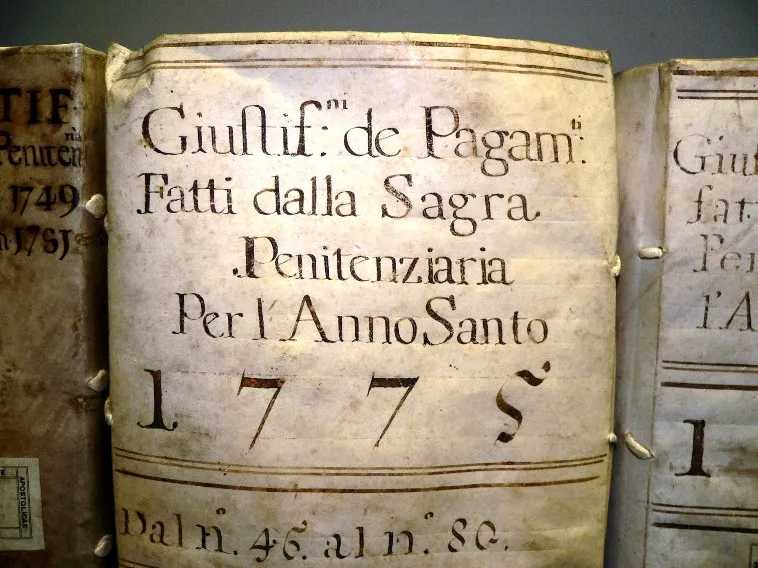 TIF
Peniten
1749
1751
Giustif:ni de Pagam:ti
Fatti dalla Sagra
Penitenziaria
Per l'Anno Santo
1775
Dal n°. 46. al n°. 80.
Gius
fatt
Pen
l'A
1
APOSTOLICAE